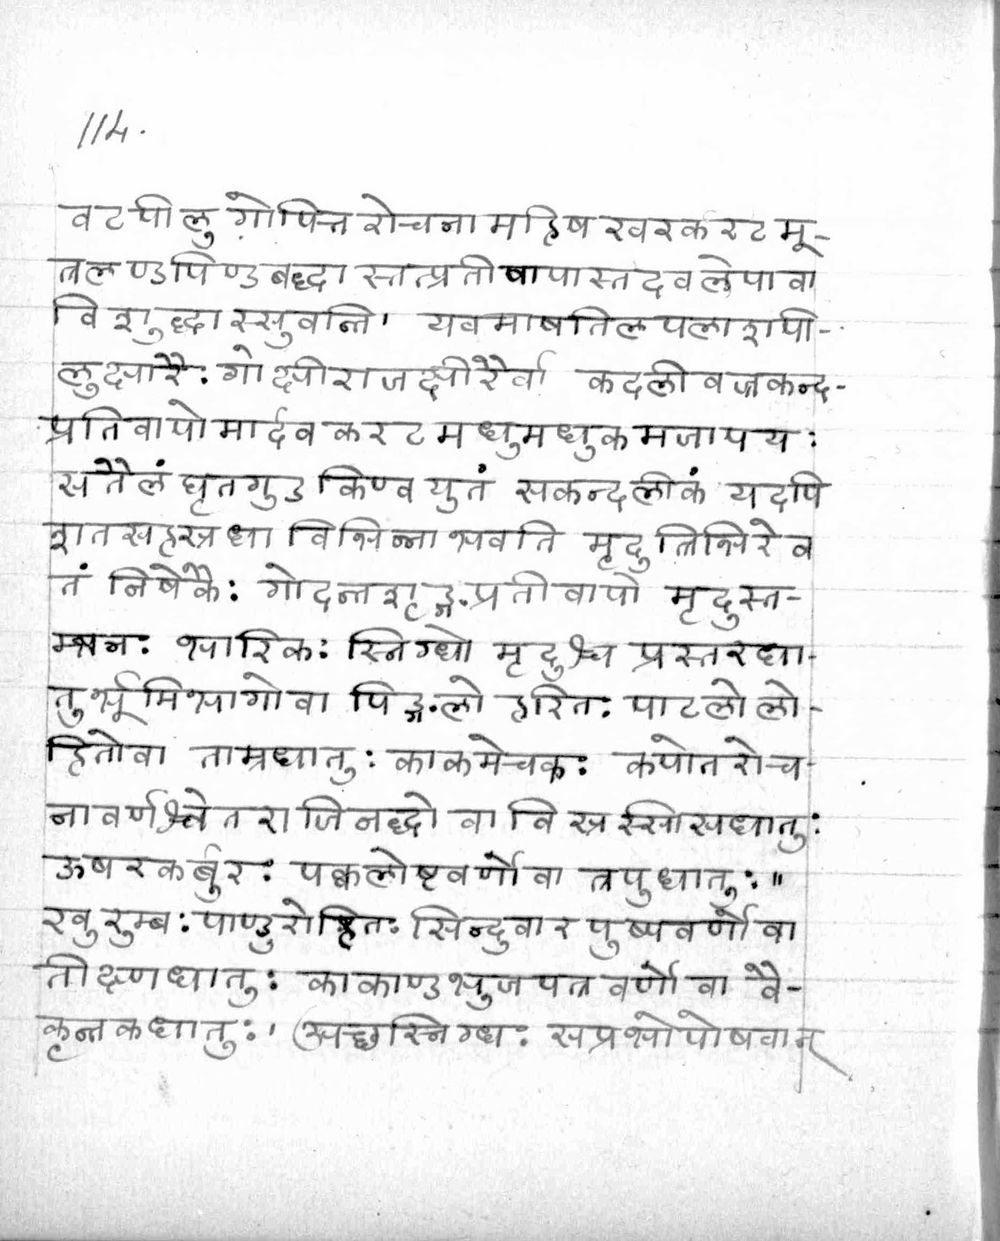 114.
वटपीलु गोपित्त रोचना महिष खर करट मू-
त्रलण्डपिण्डबद्धा स्तत्प्रतीवापास्तदवलेपा वा
विशुद्धास्सुवन्ति। यवमाषतिल पलाशपी-
लुक्षारैः गोक्षीराजक्षीरैर्वा कदलीवज्रकन्द-
प्रतिवापो मार्दवकरट मधुमधुकमजापयः
सतैलं घृतगुड किण्वयुतं सकन्दलीकं यदपि
शतसहस्रधा विभिन्ना भवति मृदुत्रिभिरेव
तं निषेकैः गोदन्तशृङ्गप्रतीवापो मृदुस्त-
म्भनः भारिकः स्निग्धो मृदुश्च प्रस्तरधा-
तुर्भूमिभागोवा पिङ्गलो हरितः पाटलो लो-
हितोवा ताम्रधातुः काकमेचकः कपोतरोच
नावर्णश्वेतराजिनद्धो वा विस्रस्सीसधातुः
ऊषरकर्बुरः पक्वलोष्टवर्णोवा त्रपुधातुः॥
खुरुम्बः पाण्डुरोहितः सिन्दुवारपुष्पवर्णो वा
तीक्ष्णधातुः काकाण्डभुजपत्रवर्णो वा वै-
कृन्तकधातुः। अच्छस्निग्धः सप्रभोघोषवान्